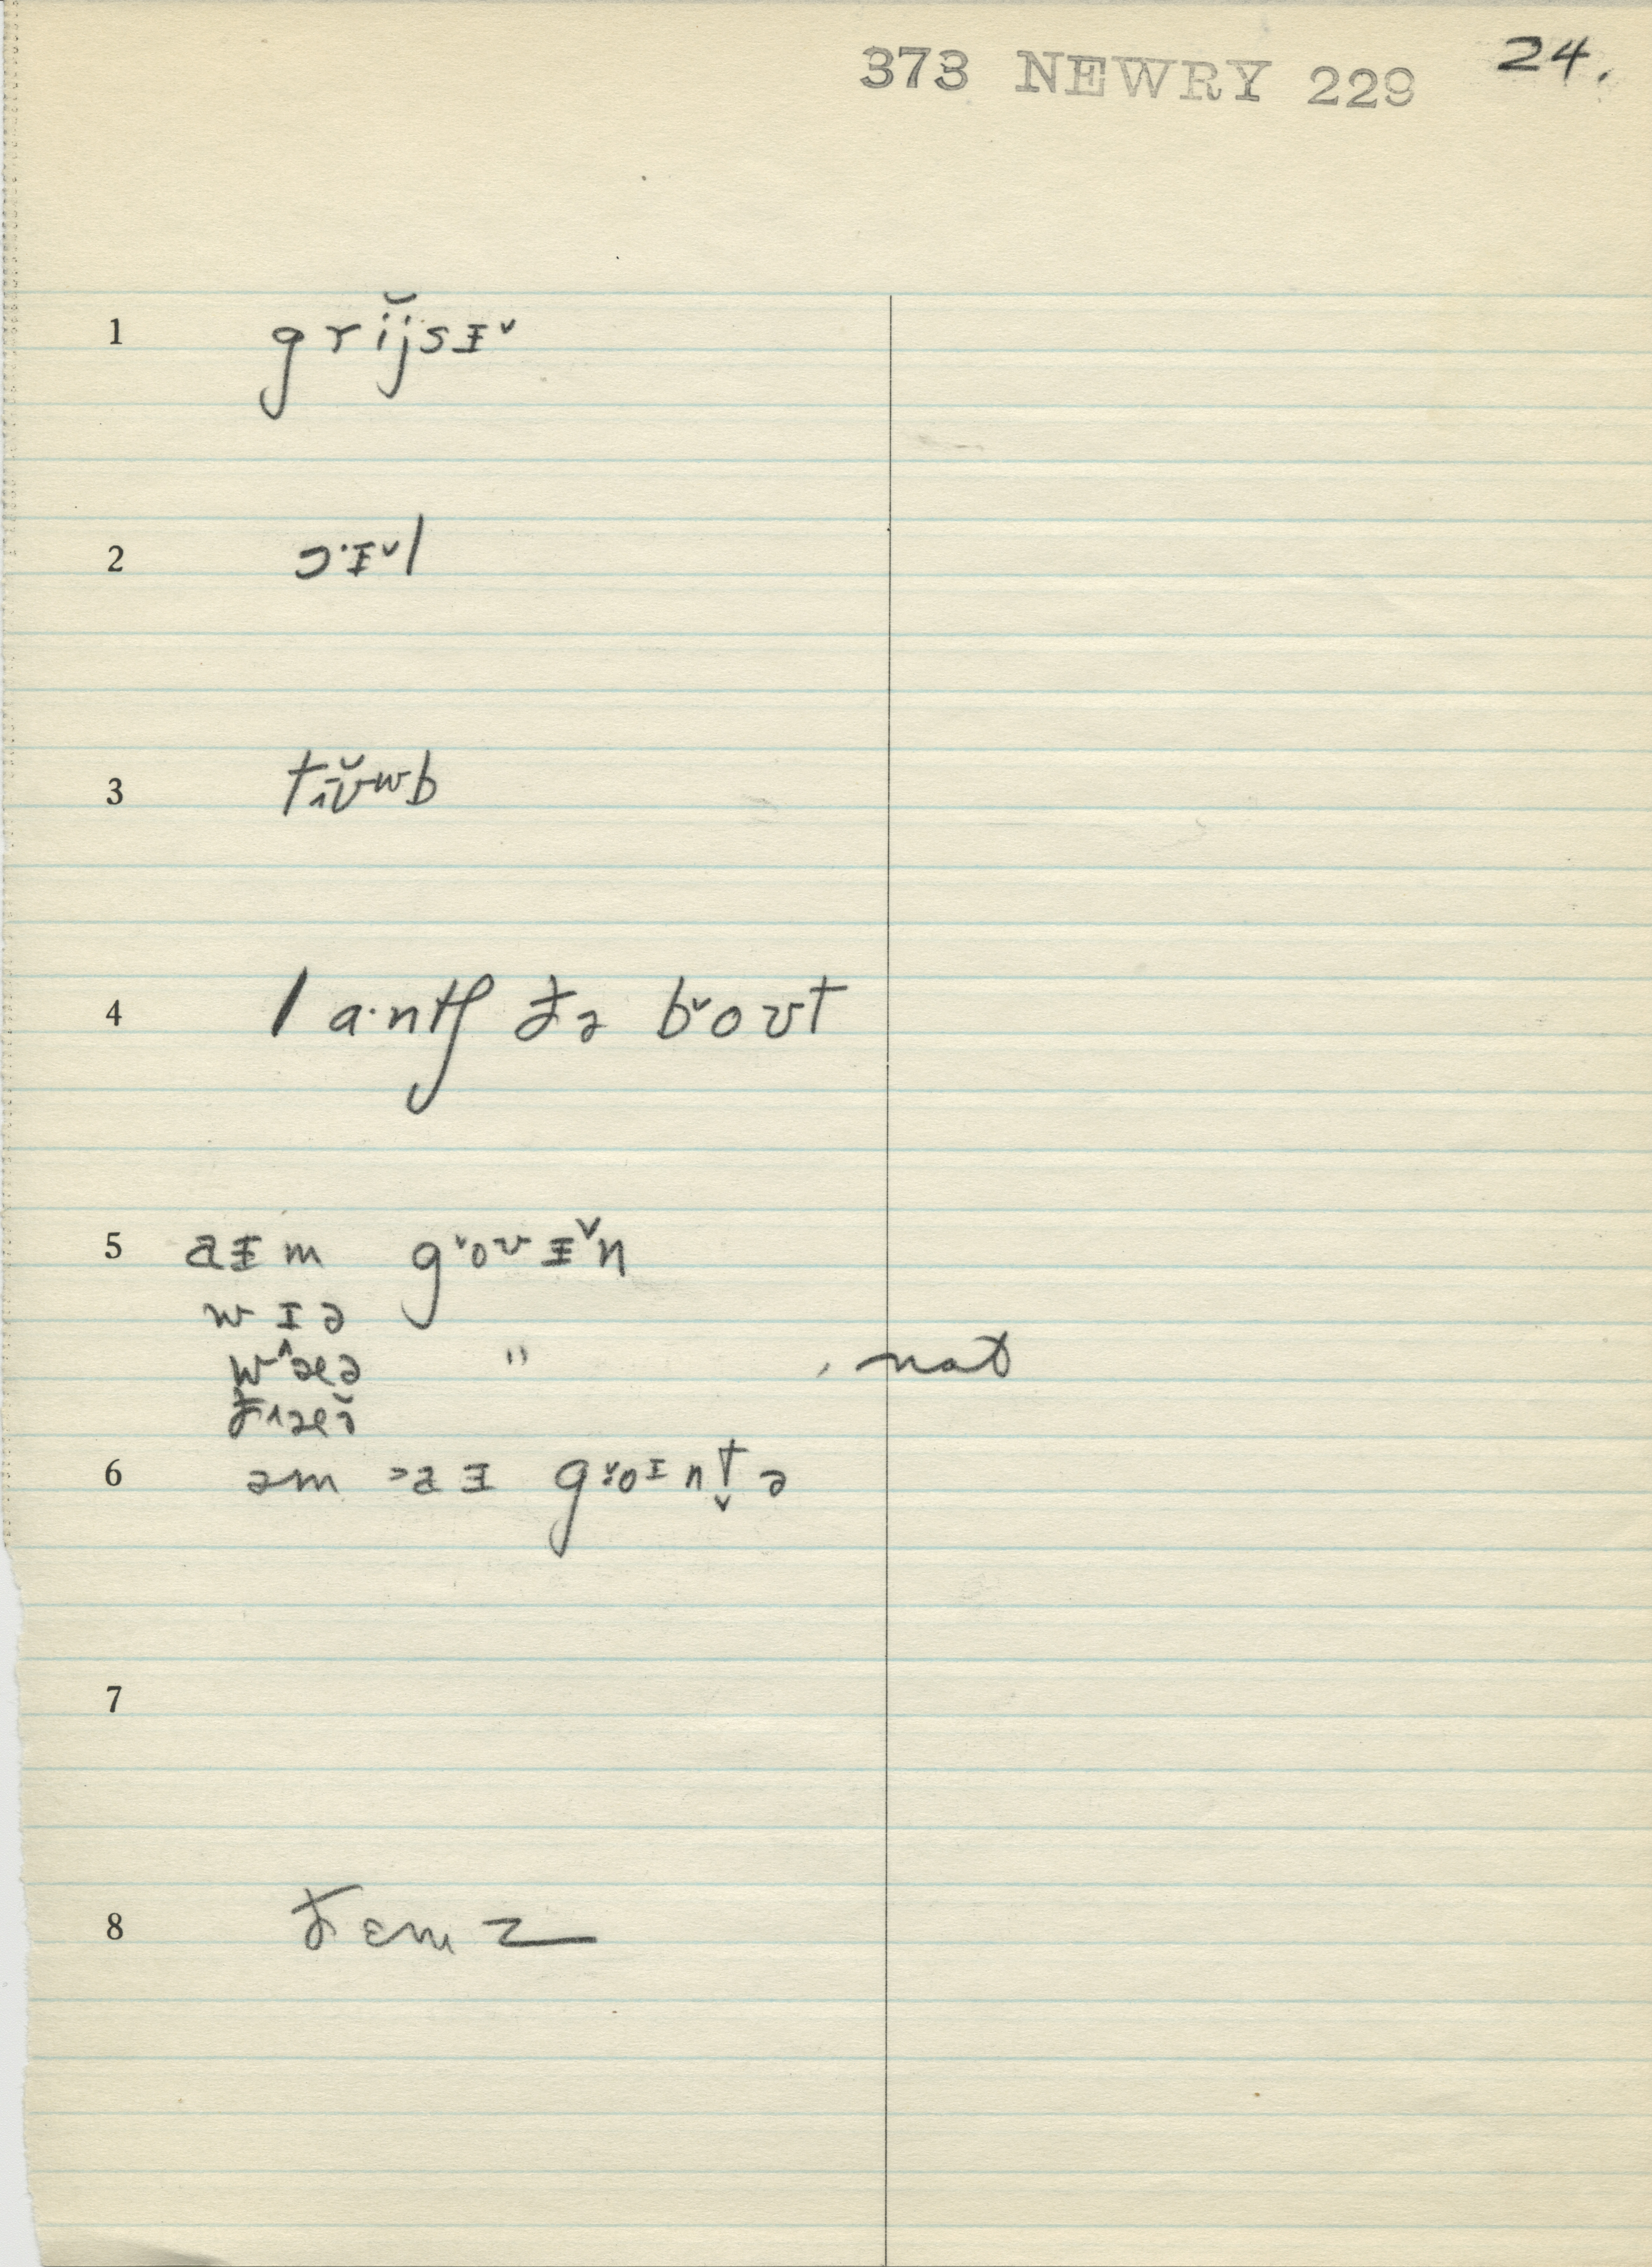 373 NEWRY 229 24.
1 grĭjsɪˇ
2 ɔ·ɪˇl
3 tɪ̯ʊ̆ʷb
4 la·ntʃ ðə bˇoʊt
5 aɪm gˇoʊɪˇn
wɪə
w^ɛə " , nat
ð^ɛə̆
6 əm ᵊaɪ gˇoɪnt̬ə
7
8 ðɛm z